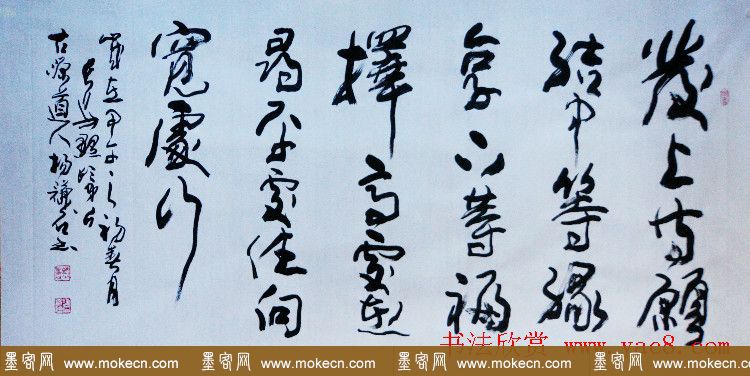 發上等願
結中等緣
享下等福
擇高處立
尋平處住向
寬處行
歲在甲午之初春月
古源道人楊謙
书法欣赏 www.yac8.com
墨客网 www.mokecn.com 墨客网 www.mokecn.com 墨客网 www.mokecn.com 墨客网 www.mokecn.com